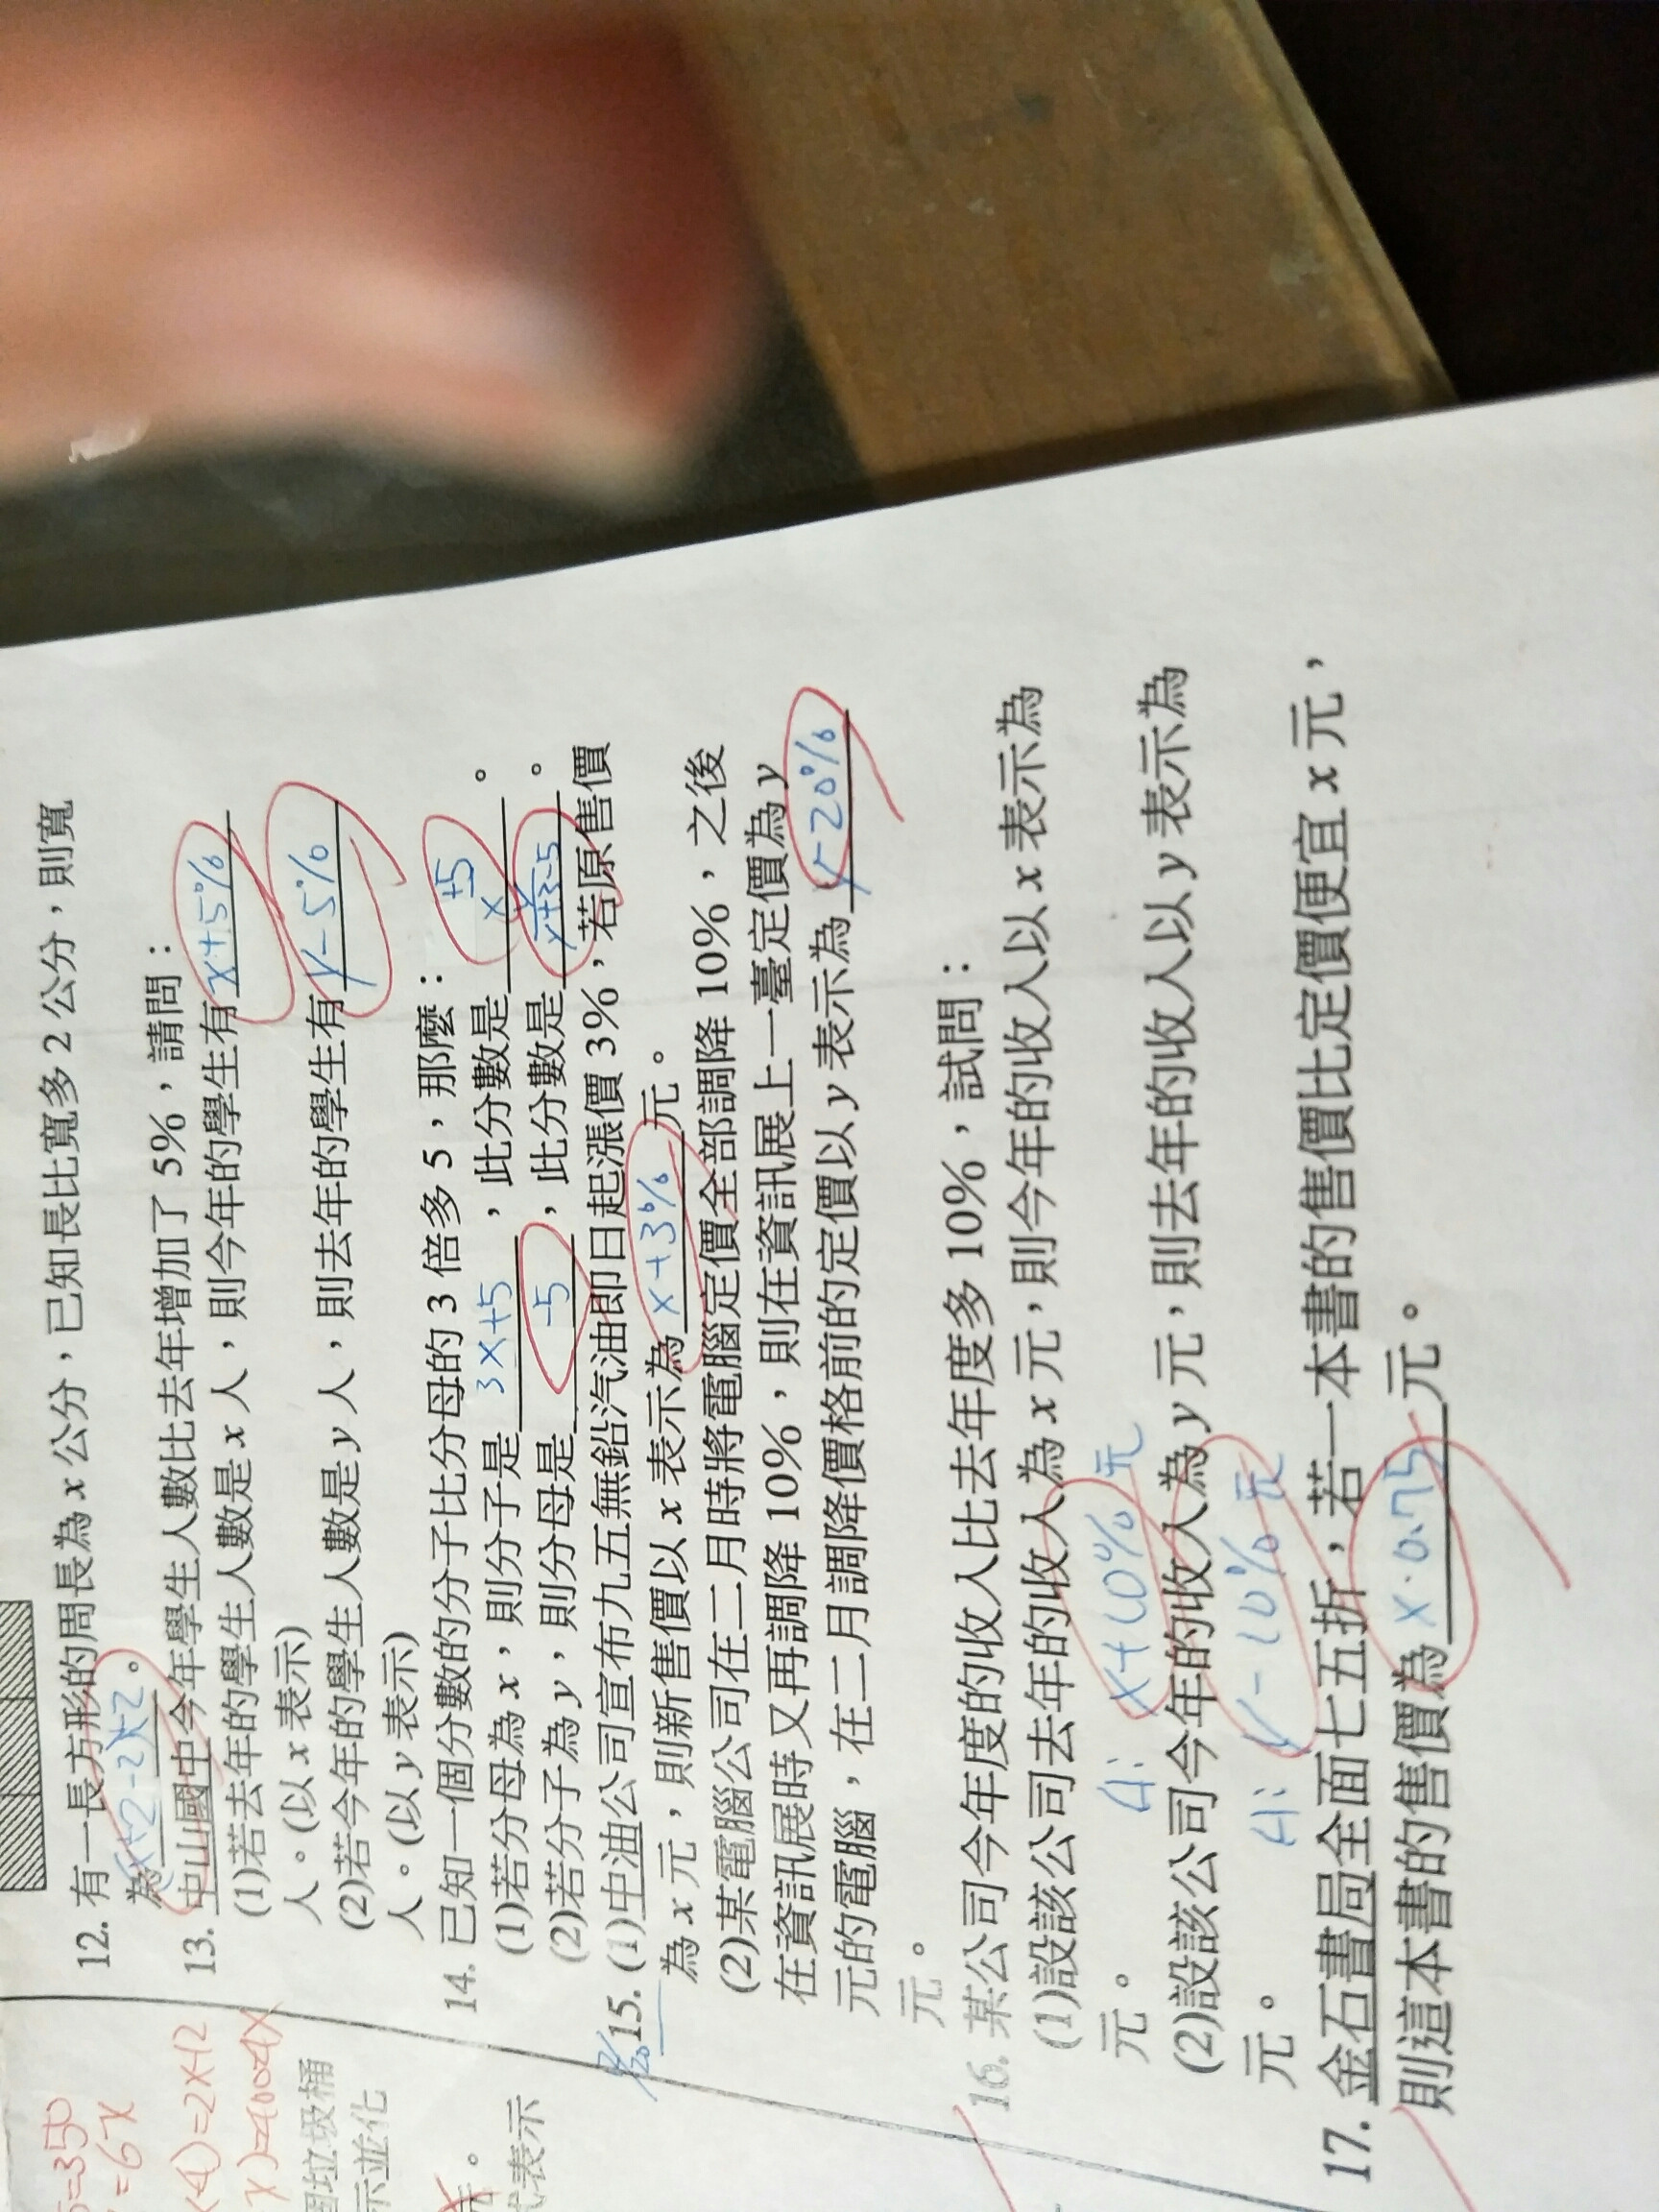 12. 有一長方形的周長為 x 公分，已知長比寬多 2 公分，則寬
為。
13. 中山國中今年學生人數比去年增加了 5%，請問：
(1)若去年的學生人數是 x 人，則今年的學生有 x+5%
人。(以 x 表示)
(2)若今年的學生人數是 y 人，則去年的學生有 y-5%
人。(以 y 表示)
14. 已知一個分數的分子比分母的 3 倍多 5，那麼：
(1)若分母為 x，則分子是 3x+5，此分數是。
(2)若分子為 y，則分母是 -5，此分數是。
15. (1)中油公司宣布九五無鉛汽油即日起漲價 3%，若原售價
為 x 元，則新售價以 x 表示為 x+3% 元。
(2)某電腦公司在二月時將電腦定價全部調降 10%，之後
在資訊展時又再調降 10%，則在資訊展上一臺定價為 y
元的電腦，在二月調降價格前的定價以 y 表示為 y-20%
元。
16. 某公司今年度的收入比去年度多 10%，試問：
(1)設該公司去年的收入為 x 元，則今年的收入以 x 表示為
元。 A: x+10%元
(2)設該公司今年的收入為 y 元，則去年的收入以 y 表示為
元。 A: y-10%元
17. 金石書局全面七五折，若一本書的售價比定價便宜 x 元，
則這本書的售價為 x·0.75 元。
=350
=6x
)=2x+2
圾桶
示並化
表示